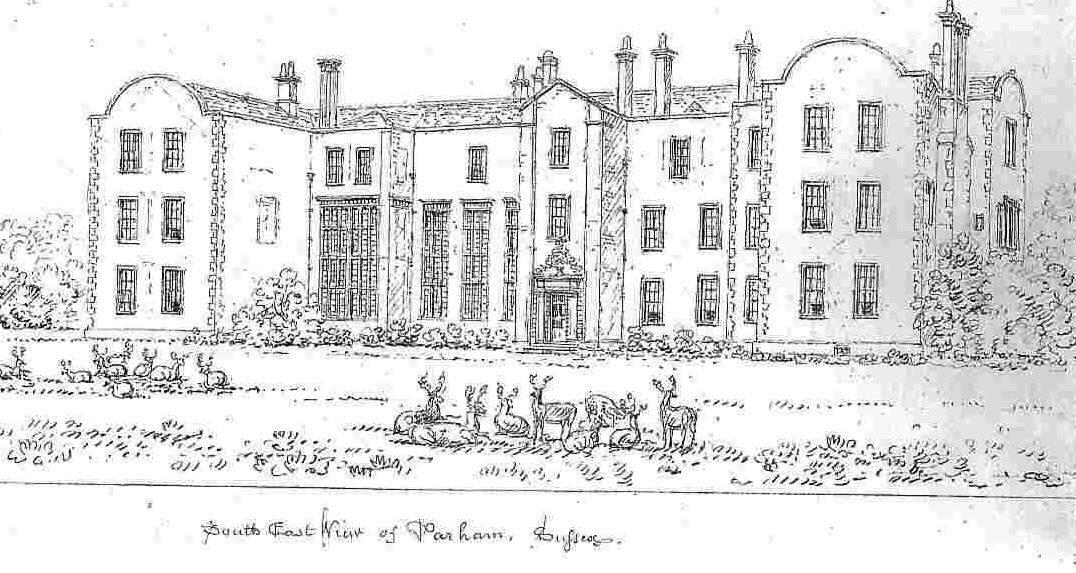 South East View of Parham, Sussex.